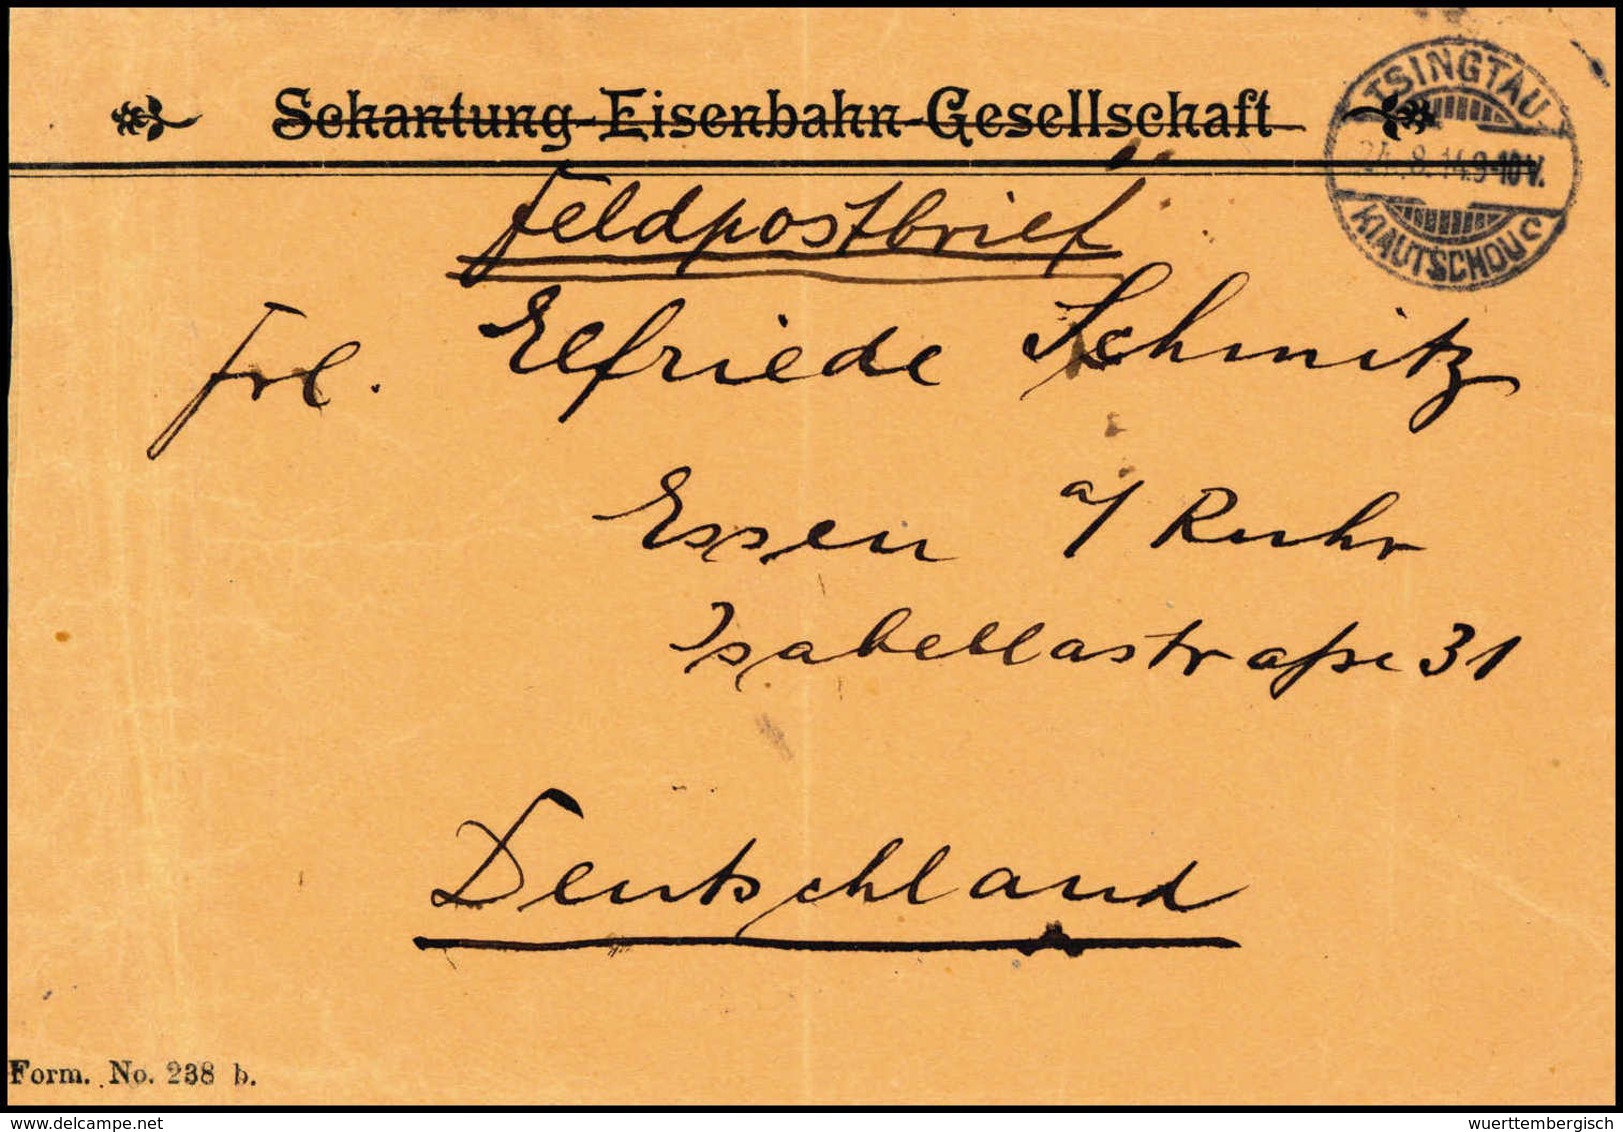 Schantung-Eisenbahn-Gesellschaft
TSINGTAU
24.8.14.9-10V.
KIAUTSCHOU
Feldpostbrief
Frl. Elfriede Schmitz
Essen a/ Ruhr
Isabellastraße 31
Deutschland
Form. No. 238 b.
delcampe.net
wuerttembergisch